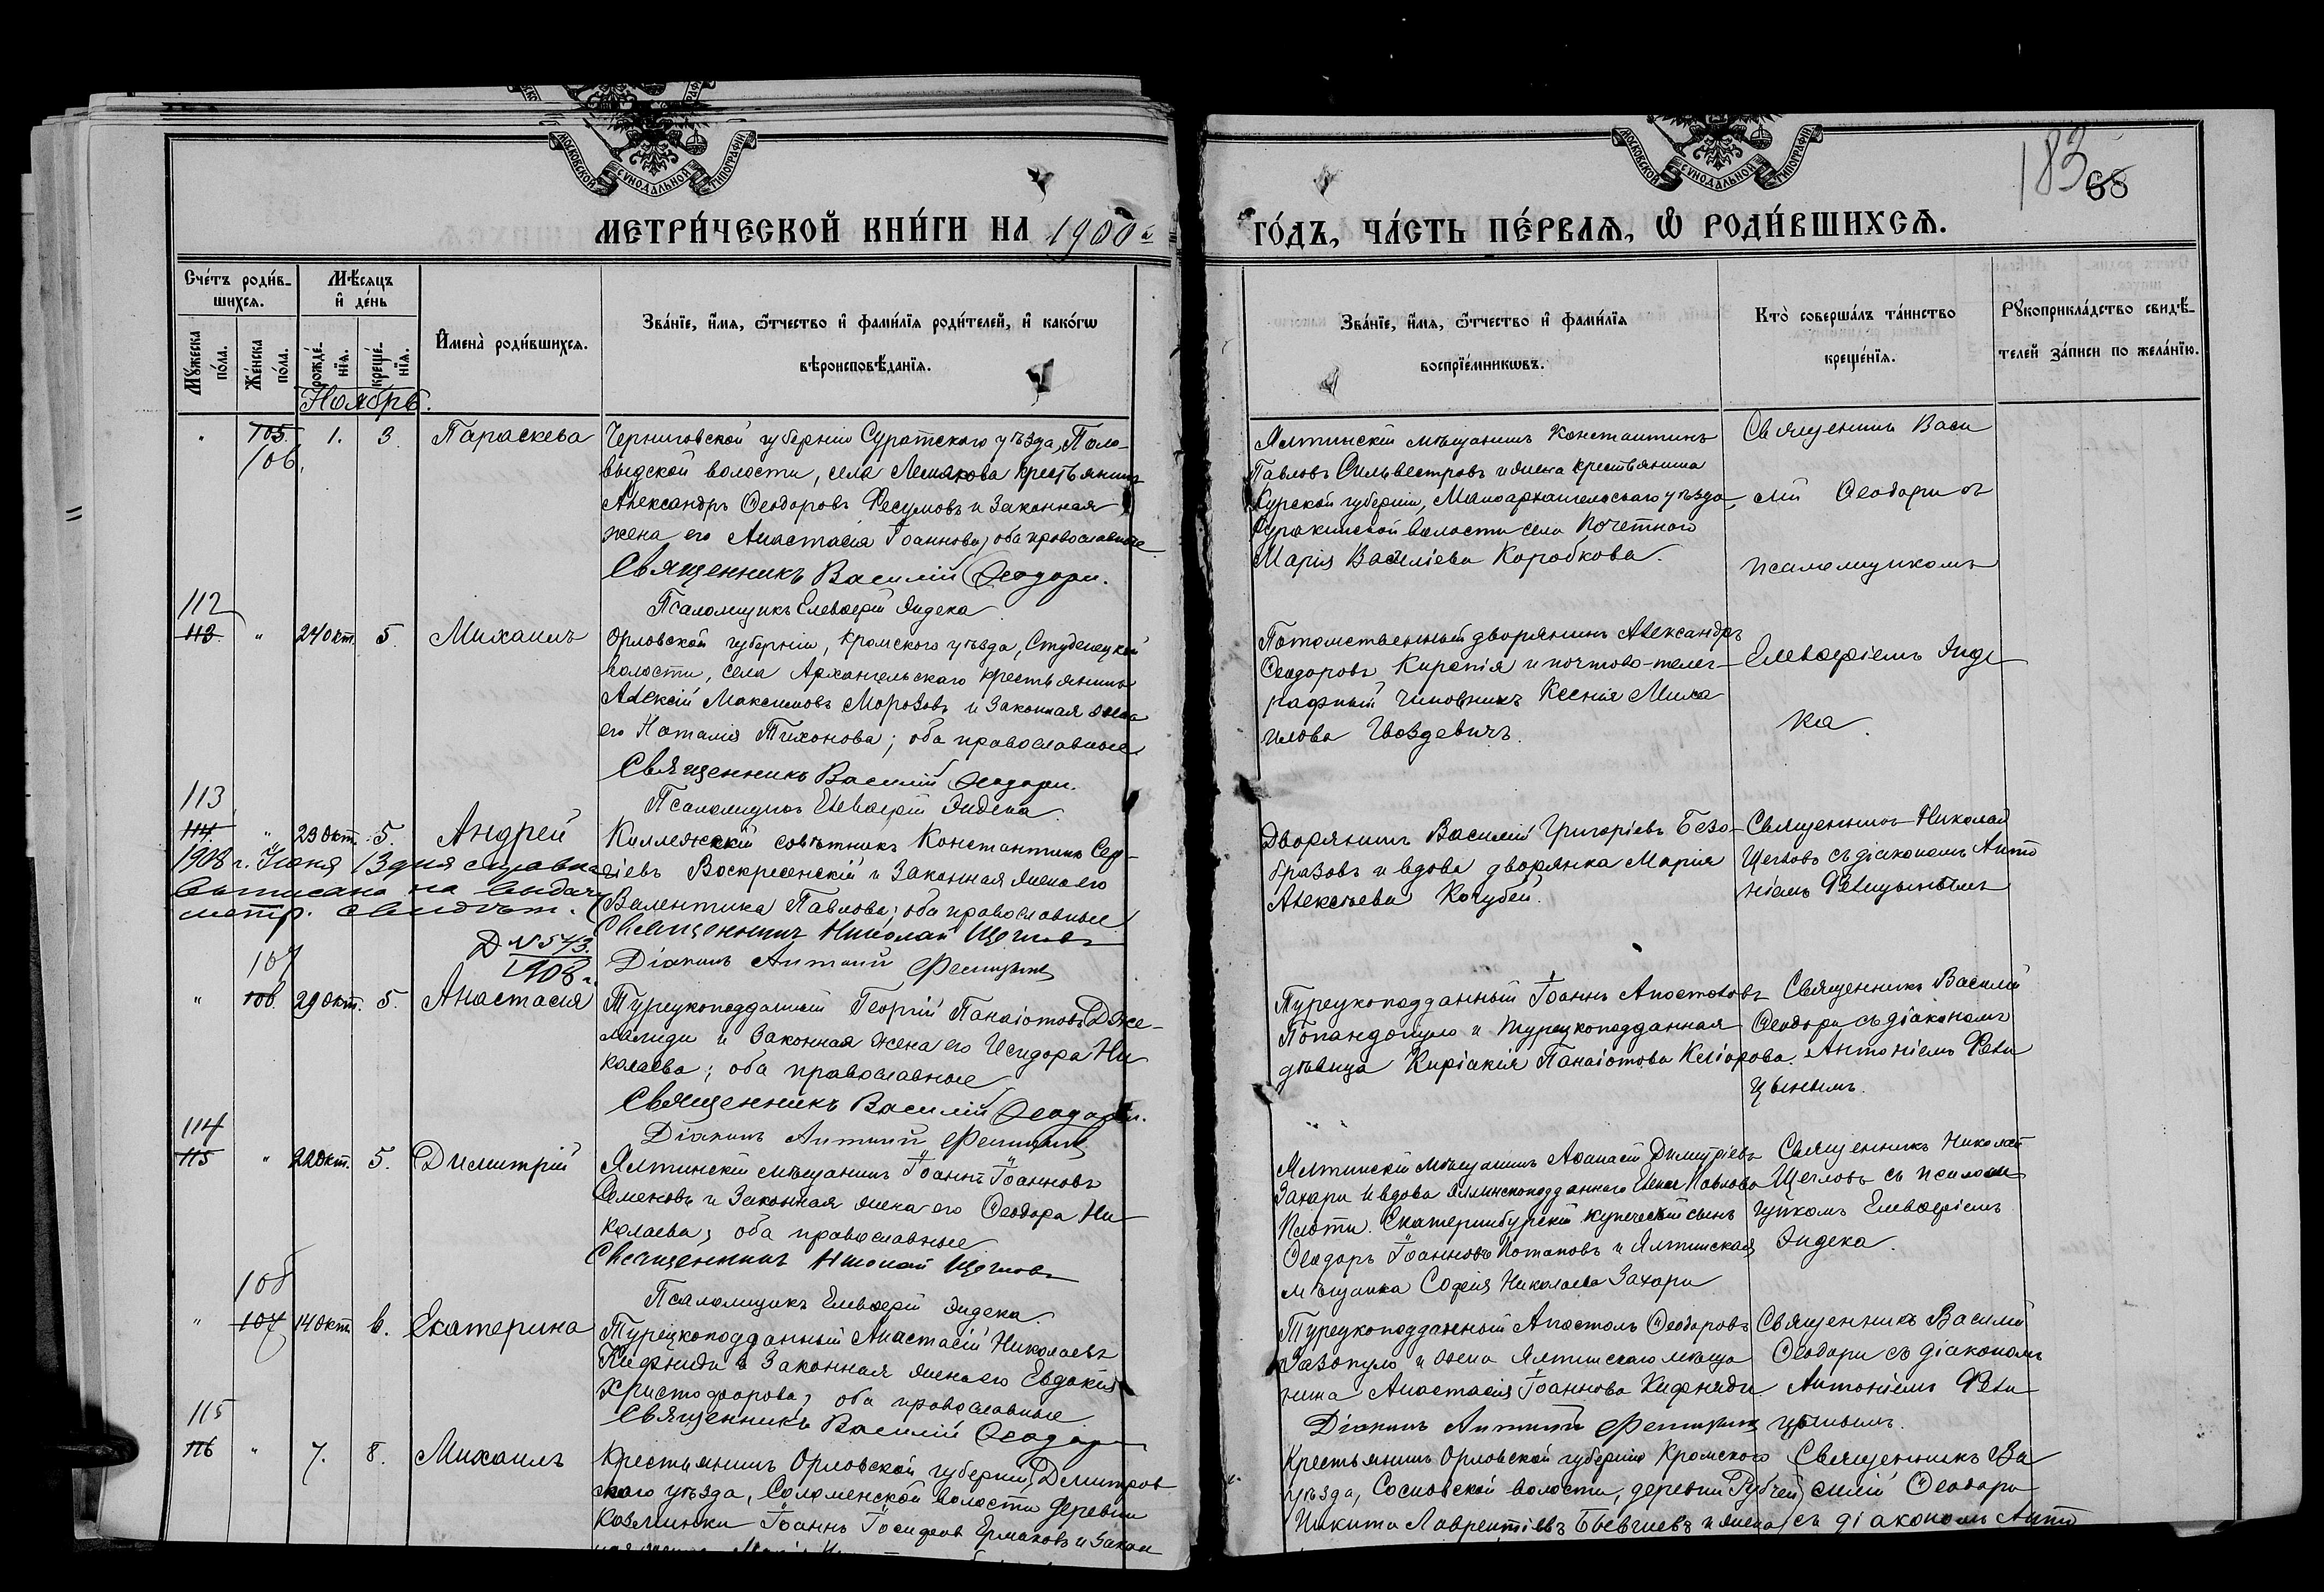 МОСКОВСКОЙ СѴНОДАЛЬНОЙ ТИПОГРАФІИ
МОСКОВСКОЙ СѴНОДАЛЬНОЙ ТИПОГРАФІИ
183
68
МЕТРИ́ЧЕСКОЙ КНИ́ГИ НА 1900й
ГО́ДЪ, ЧА́СТЬ ПЕ́РВАѦ, Ѡ РОДИ́ВШИХСѦ.
Сче́тъ роди́в-
шихсѧ.
Мѣ́сѧцъ
и҆ де́нь
Мꙋ́жеска
по́ла.
Же́нска
по́ла.
рожде́-
нїѧ.
креще́-
нїѧ.
И҆мена̀ роди́вшихсѧ.
Зва́нїе, и҆́мѧ, ѻ҆́тчество и҆ фами́лїѧ роди́телей, и҆ како́гѡ
вѣроисповѣ́данїѧ.
Зва́нїе, и҆́мѧ, ѻ҆́тчество и҆ фами́лїѧ
воспрїе́мникѡвъ.
Кто̀ соверша́лъ та́инство
креще́нїѧ.
Рꙋкоприкла́дство свидѣ́-
телей за́писи по жела́нїю.
Ноябрь.
" 105. 1. 3. Параскева
106.
Черниговской губерніи Суражскаго уѣзда,
волости, села крестьянинъ
Александръ Ѳеодоровъ и законная
жена его Анастасія Іоаннова; оба православные
Священникъ Василій Ѳеодори.
Псаломщикъ Елевѳерій Эндека
Ялтинскій мѣщанинъ Константинъ
Павловъ Сильвестровъ и жена крестьянина
Курской губерніи, Малоархангельскаго уѣзда,
Куракинской волости села
Марія Василіева Коробкова.
Священникъ Васи
лій Ѳеодори съ
псаломщикомъ
Елевѳеріемъ Энде
ка.
112
113. " 24 Окт. 5. Михаилъ
Орловской губерніи, Кромского уѣзда, Студенецкой
волости, села Архангельскаго крестьянинъ
Алексій Максимовъ Морозовъ и законная жена
его Наталія Тихонова; оба православные
Священникъ Василій Ѳеодори.
Псаломщикъ Елевѳерій Эндека
Потомственный дворянинъ Александръ
Ѳеодоровъ и почтово-телег-
рафный чиновникъ Ксенія Миха
илова Гвоздевичъ.
113
114 " 23 Окт. 5. Андрей
1908 г. Іюня 13 дня справка
выписана на выдачу
метр. свидѣт.
Д N 543.
1908 г.
Коллежскій совѣтникъ Константинъ Сер-
гіевъ Воскресенскій и законная жена его
Валентина Павлова; оба православные
Священникъ Николай Щегловъ
Діаконъ Антоній
Дворянинъ Василій Григоріевъ Безо-
бразовъ и вдова дворянка Марія
Алексѣева Кочубей.
Священникъ Николай
Щегловъ съ діакономъ Анто
ніемъ
107
" 106. 29 Окт. 5. Анастасія
Турецкоподданный Георгій Панаіотовъ Дже-
малиди и законная жена его Исидора Ни
колаева; оба православные
Священникъ Василій Ѳеодори.
Діаконъ Антоній
Турецкоподданный Іоаннъ Апостоловъ
Попандопуло и турецкоподданная
дѣвица Киріакія Панаіотова
Священникъ Василій
Ѳеодори съ діакономъ
Антоніемъ
114
115 " 22 Окт. 5. Димитрій
Ялтинскій мѣщанинъ Іоаннъ Іоанновъ
Семеновъ и законная жена его Ѳеодора Ни
колаева; оба православные
Священникъ Николай Щегловъ
Псаломщикъ Елевѳерій Эндека.
Ялтинскій мѣщанинъ Аѳанасій Димитріевъ
Захари и вдова Эллинскоподданнаго Елена Павлова
Екатеринбургскій купеческій сынъ
Ѳеодоръ Іоанновъ Потаповъ и Ялтинская
мѣщанка Софія Николаева Захари
Священникъ Николай
Щегловъ съ псалом
щикомъ Елевѳеріемъ
Эндека.
108
" 107 14 Окт. 6. Екатерина
Турецкоподданный Анастасій Николаевъ
Кифниди и законная жена его Евдокія
Христофорова; оба православные
Священникъ Василій Ѳеодори
Турецкоподданный Апостолъ Ѳеодоровъ
и жена Ялтинскаго мѣща
нина Анастасія Іоаннова Кифниди
Діаконъ Антоній
Священникъ Василій
Ѳеодори съ діакономъ
Антоніемъ
115
116 " 7. 8. Михаилъ
Крестьянинъ Орловской губерніи, Дмитров
скаго уѣзда, Соломенской волости деревни
Козлинки Іоаннъ Іосифовъ Ермаковъ и закон
Крестьянинъ Орловской губерніи Кромского
уѣзда, Сосновской волости, деревни
Никита Лаврентіевъ и жена
Священникъ Ва
силій Ѳеодори
съ діакономъ Анто